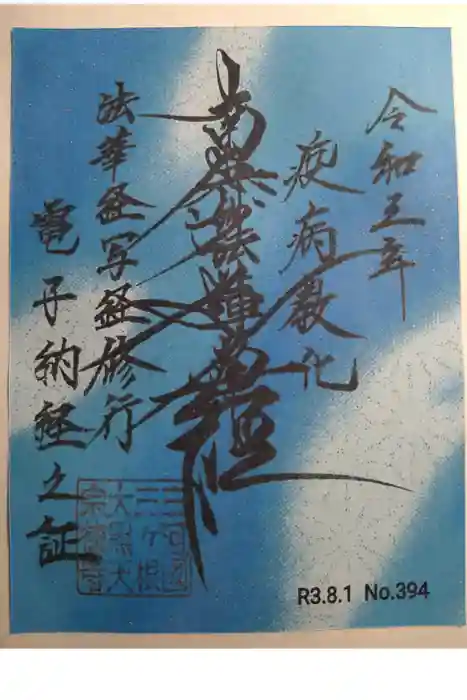 令和三年
疫病教化
南無妙法蓮華経
法華経写経修行
電子納経之証
三ヶ根
R3.8.1 No.394